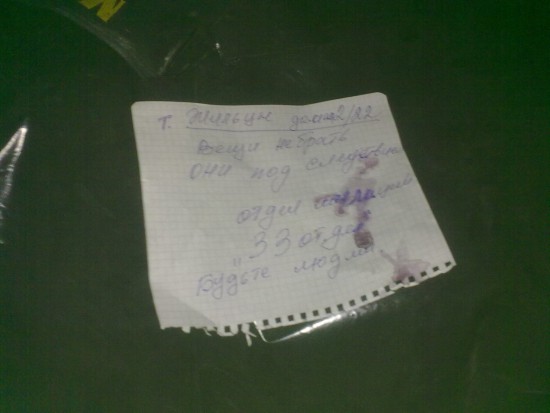 т. Жильцы дома 2/22
Вещи не брать
они под следствием
отдел
"33 отдел
Будьте людми